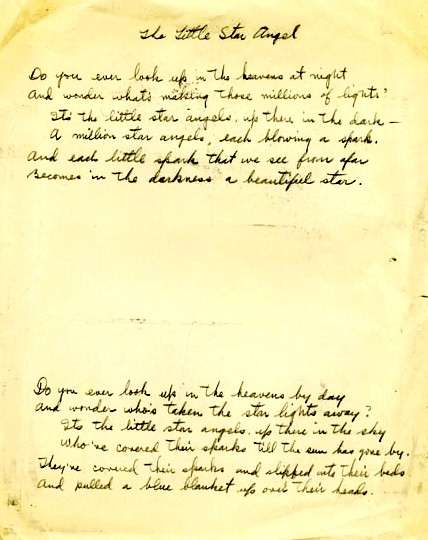 The Little Star Angel
Do you ever look up in the heavens at night
And wonder what's making those millions of lights?
Its the little star angels, up there in the dark —
A million star angels, each blowing a spark.
And each little spark that we see from afar
Becomes in the darkness a beautiful star.
Do you ever look up in the heavens by day
And wonder who's taken the star lights away?
Its the little star angels, up there in the sky
Who've covered their sparks till the sun has gone by.
They've covered their sparks and slipped into their beds
And pulled a blue blanket up over their heads.